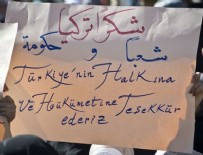 شكرا تركيا
شعبا و حكومة
Türkiye'nin Halkına
ve Hükümetine Teşekkür
ederiz